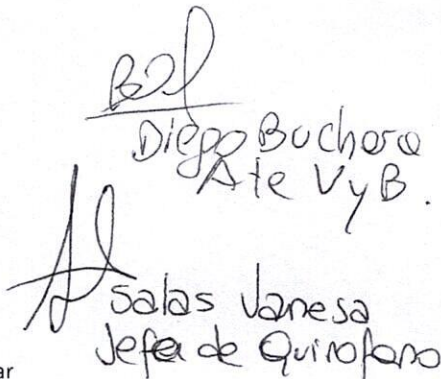 Diego Buchara
Ate VyB.
Salas Vanesa
Jefa de Quirofano
ar